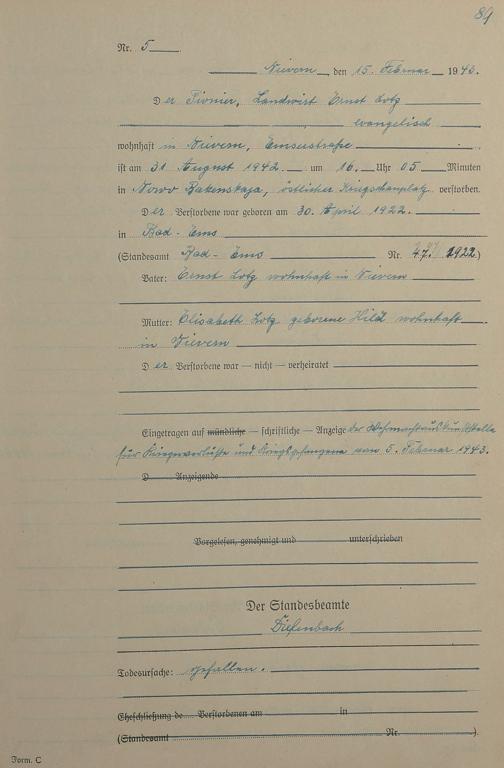 84
Nr. 5
Nievern, den 15. Februar 1943.
Der Pionier, Landwirt Ernst Lotz
evangelisch
wohnhaft in Nievern, Emserstraße
ist am 31 August 1942 um 16 Uhr 05 Minuten
in Nowo Bakenskaja, östlicher Kriegsschauplatz verstorben.
Der Verstorbene war geboren am 30. April 1922.
in Bad-Ems
(Standesamt Bad-Ems Nr. 47. 1922.)
Vater: Ernst Lotz wohnhaft in Nievern
Mutter: Elisabeth Lotz geborene Hild wohnhaft
in Nievern
Der Verstorbene war — nicht — verheiratet
Eingetragen auf mündliche — schriftliche — Anzeige der Wehrmachtauskunftstelle
für Kriegerverluste und Kriegsgefangene vom 5. Februar 1943.
D Anzeigende
Vorgelesen, genehmigt und unterschrieben
Der Standesbeamte
Diefenbach
Todesursache: gefallen.
Eheschließung de Verstorbenen am in
(Standesamt Nr. ).
Form. C